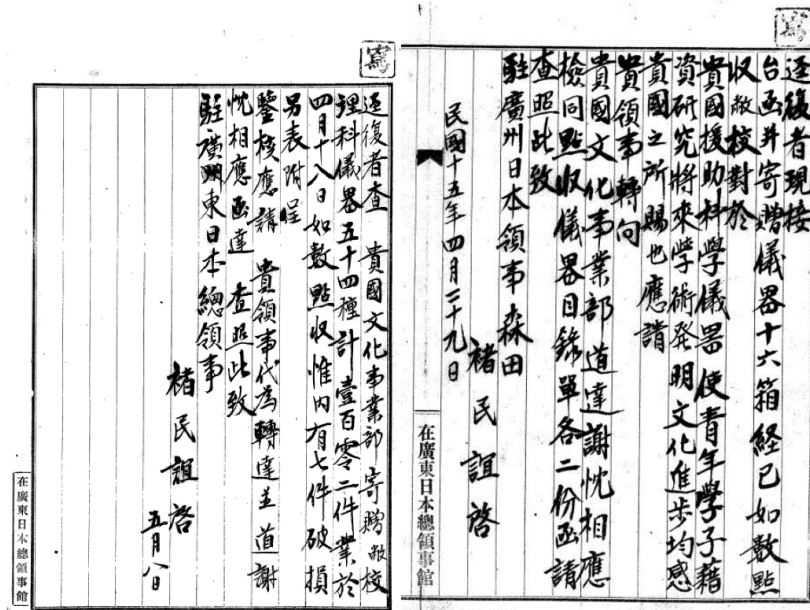 寫
逕復者現接
台函并寄贈儀器十六箱経已如數點
收敝校對於
貴國援助科學儀器使青年學子藉
資研究將來學術発明文化進步均感
貴國之所賜也應請
貴領事轉向
貴國文化事業部道達謝忱相應
檢同點收儀器目錄單各二份函請
查照此致
駐廣州日本領事森田
褚民誼啓
民國十五年四月二十九日
在廣東日本總領事館
寫
逕復者查 貴國文化事業部寄贈敝校
理科儀器五十四種計壹百零二件業於
四月十八日如數點収惟內有七件破損
另表附呈
鑒核應請 貴領事代為轉達並道謝
忱相應函達 查照此致
駐廣東日本總領事
褚民誼啓
五月八日
在廣東日本總領事館